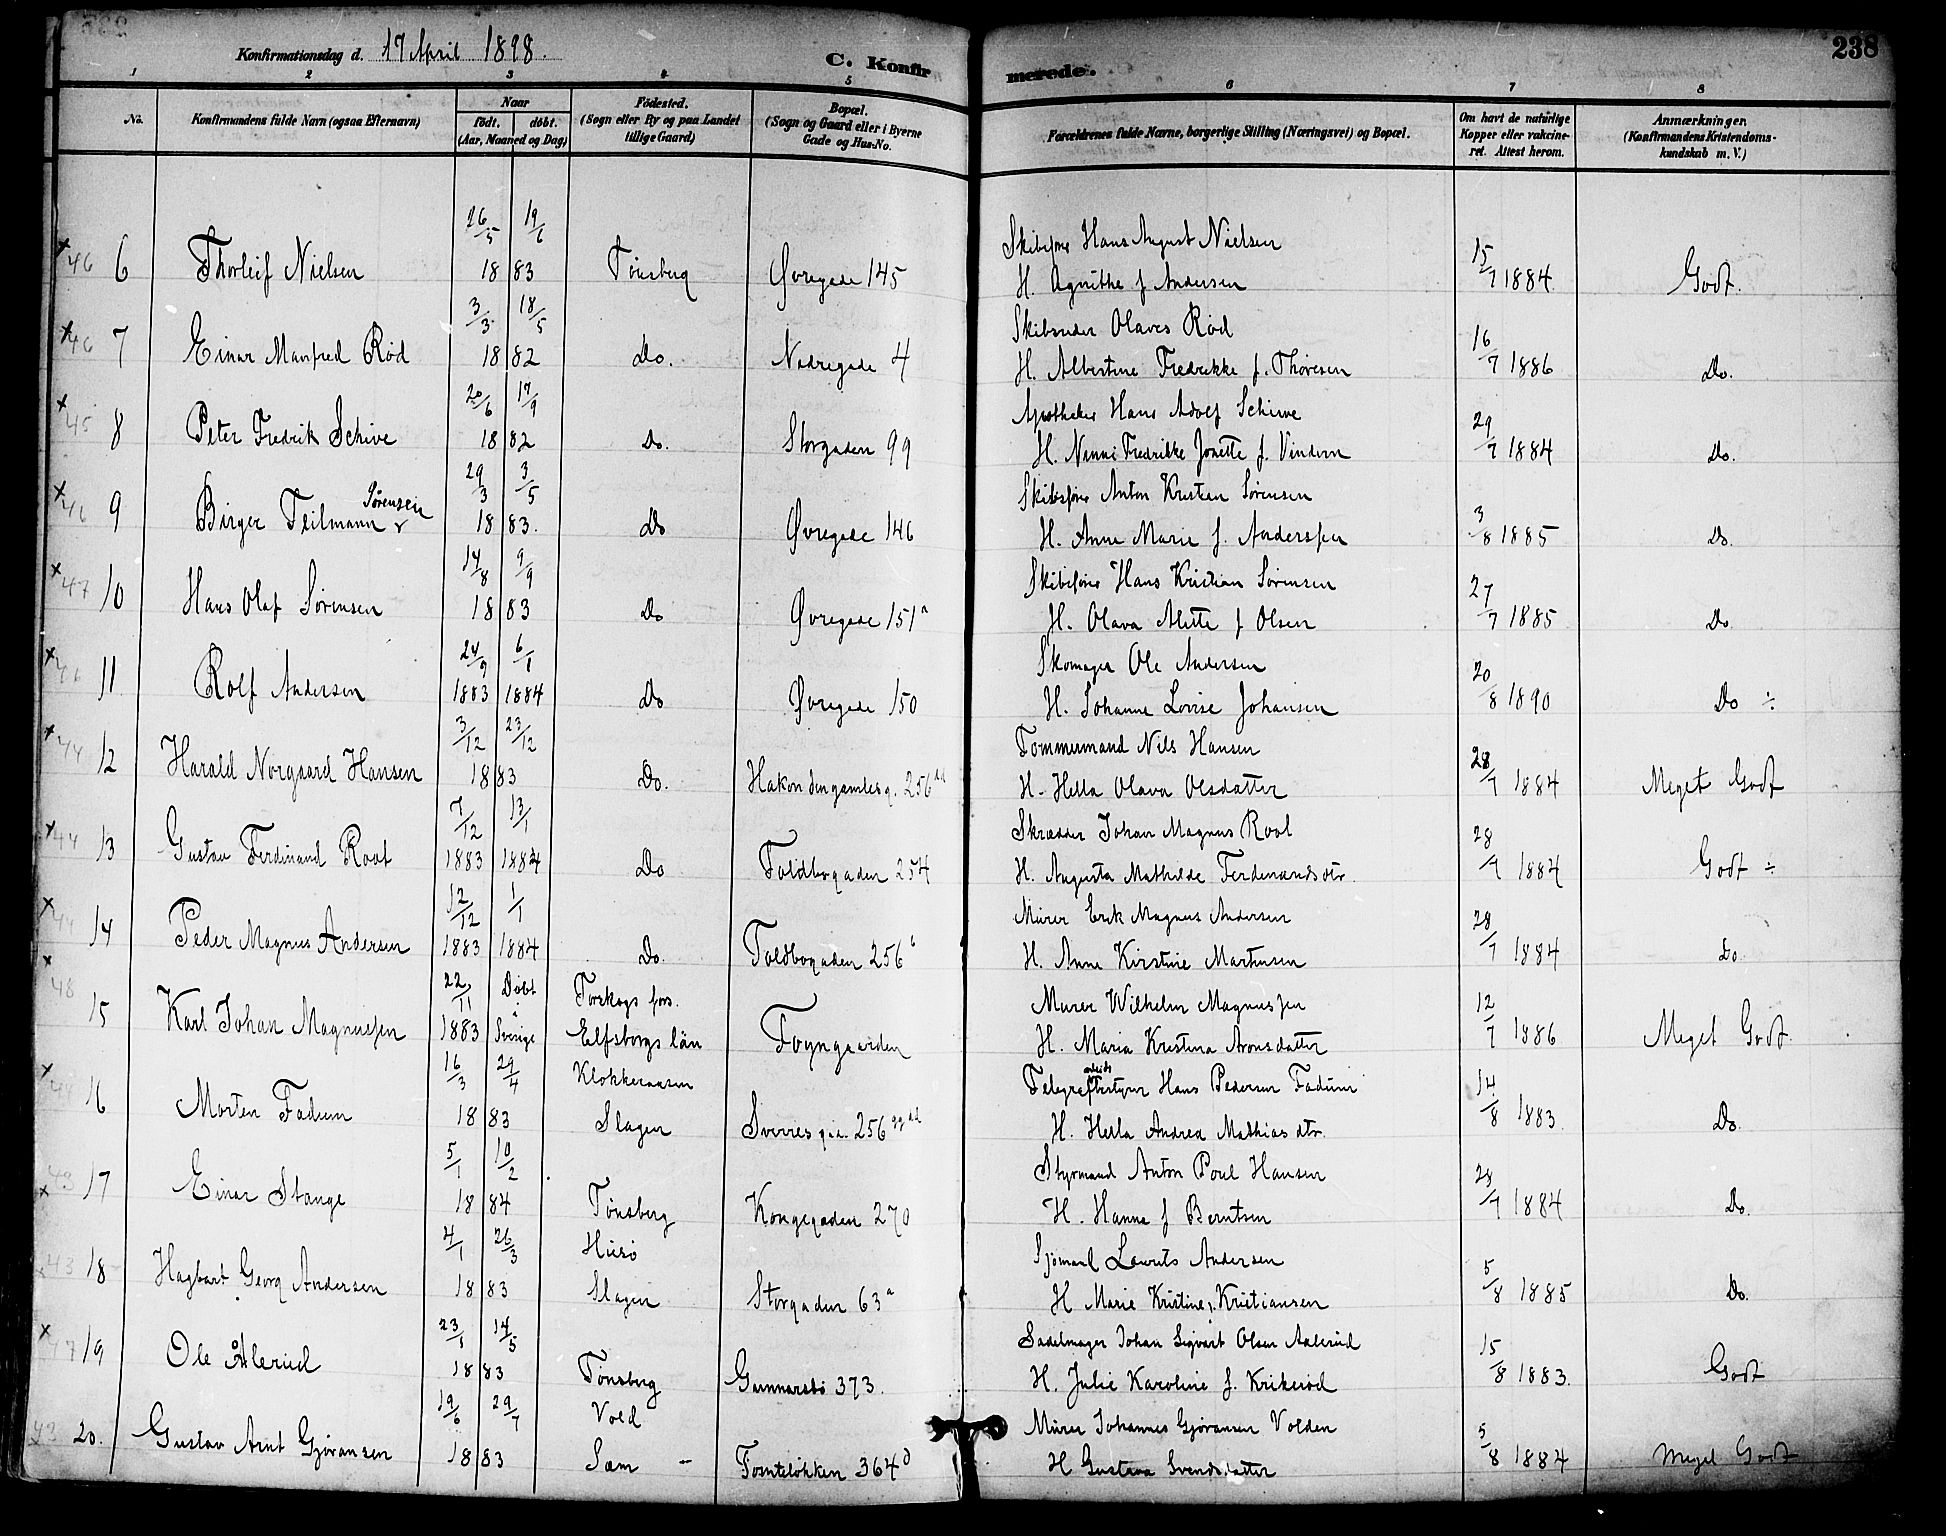 Konfirmationsdag d. 17 April 1898.
C. Konfirmerede.
238
1 2 3 4 5 6 7 8
No.
Konfirmandens fulde Navn (ogsaa Efternavn)
Naar
født. døbt.
(Aar, Maaned og Dag)
Fødested.
(Sogn eller By og paa Landet
tillige Gaard)
Bopæl.
(Sogn og Gaard eller i Byerne
Gade og Hus-No.
Forældrenes fulde Navne, borgerlige Stilling (Næringsvei) og Bopæl.
Om havt de naturlige
Kopper eller vakcine-
ret. Attest herom.
Anmærkninger.
(Konfirmandens Kristendoms-
kundskab m. V.)
26/5 19/6 Skibsfører Hans August Nielsen
×46 6 Thorleif Nielsen 18 83 Tønsberg Øvregade 145 H. Agnithe f Andersen 15/7 1884 Godt.
3/3 18/5 Skibsreder Olaves Rød
×46 7 Einar Manfred Rød 18 82 Do. Nedregade 4 H. Albertine Fredrikke f. Thoresen 16/7 1886 Do.
20/6 17/9 Apotheker Hans Adolf Schive
×45 8 Peter Fredrik Schive 18 82 Do. Storgaden 99 H. Nanni Fredrikke Jonette f. Vindern 29/7 1884 Do.
29/3 3/5 Skibsfører Anton Kristen Sørensen
×46 9 Birger Teilmann Sørensen 18 83. Do Øvregade 146 H. Anne Marie f. Anderssen 3/8 1885 Do.
14/8 9/9 Skibsfører Hans Kristian Sørensen
×47 10 Hans Olaf Sørensen 18 83 Do Øvregade 151a H. Olava Alette f Olsen 27/7 1885 Do
24/9 6/1 Skomager Ole Andersen
×46 11 Rolf Andersen 1883 1884 Do Øvregade 150 H. Johanne Lovise Johansen 20/8 1890 Do ÷
3/12 23/12 Tømmermand Nils Hansen
×44 12 Harald Norgaard Hansen 18 83 Do. Hakon dengamlesg. 256dd H. Hella Olava Olsdatter 28/7 1884 Meget Godt
7/12 13/1 Skrædder Johan Magnus Root
×44 13 Gustav Ferdinand Root 1883 1884 Do Toldbogaden 254 H. Augusta Mathilde Ferdinandsdtr. 28/7 1884 Godt ÷
12/12 1/1 Murer Erik Magnus Andersen
×44 14 Peder Magnus Andersen 1883 1884 Do. Toldbogaden 256b H. Anne Kirstine Martinsen 28/7 1884 Do.
22/11 Døbt Torskogs fors. Murer Wilhelm Magnussen
×48 15 Karl Johan Magnussen 1883 i Sverige Elfsborgs län Foyngaarden H. Maria Kristina Aronsdatter 12/7 1886 Meget Godt.
16/3 29/4 Klokkeraasen Telegrafarbeidsbestyrer Hans Pedersen Fadum
×44 16 Morten Fadum 18 83 Slagen Sverresgd. 256 H. Hella Andrea Mathiasdtr. 14/8 1883. Do.
5/1 10/2 Styrmand Anton Poul Hansen
×43 17 Einar Stange 18 84 Tønsberg Kongegaden 270 H. Hanna f Berntsen 28/7 1884 Do.
4/1 26/3 Husø Sjømand Laurits Andersen
×43 18 Hagbart Georg Andersen 18 83 Slagen Storgaden 63a H Marie Kristine f. Kristiansen 5/8 1885 Do.
23/1 14/5 Sadelmager Johan Sigvart Olsen Aalerud
×47 19 Ole Ålerud 18 83 Tønsberg Gunnarsbø 373. H. Julie Karoline f. Krikerød 15/8 1883. Godt
19/6 29/7 Vold Murer Johannes Gjøransen Volden
43 20. Gustav Arnt Gjøransen 18 83 Sem - Tomteløkken 364d H Gustava Svendsdatter 5/8 1884 Meget Godt